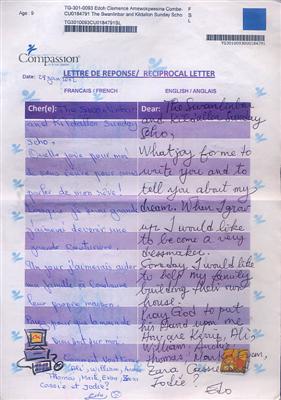 Age : 9
TG-301-0093 Edoh Clemence Amewokpessina Combe-
CU0184791 The Swanlinbar and Kildallon Sunday Scho
TG3010093CU0184791SL
F
S
L
TG3010093000184791
Compassion
Date:
LETTRE DE REPONSE/ RECIPROCAL LETTER
FRANCAIS / FRENCH
ENGLISH / ANGLAIS
Cher(e):
The Swanlinbar
and Kildallon Sunday
Scho,
Quelle joie pour moi
de vous écrire pour vous
parler de mon rêve!
Lorsque je serai grand
j'aimerai devenir une
grande couturière.
Un jour j'aimerais aider
ma famille à construire
leur propre maison.
Priez pour que la main de
Dieu soit sur moi.
Comment vont
Ali, William, Archie
Thomas, Mark, Evan, Zara
Cassie et Jodie?
Edo
Dear: The Swanlinbar
and Kildallon Sunday
Scho,
What joy for me to
write you and to
tell you about my
dream. When I grow
up I would like
to become a very
dressmaker.
Someday I would like
to help my family
building their own
house.
Pray God to put
his hand upon me
How are Ali,
William, Archie
Thomas, Mark,
Zara Cassie
Jodie?
Edo